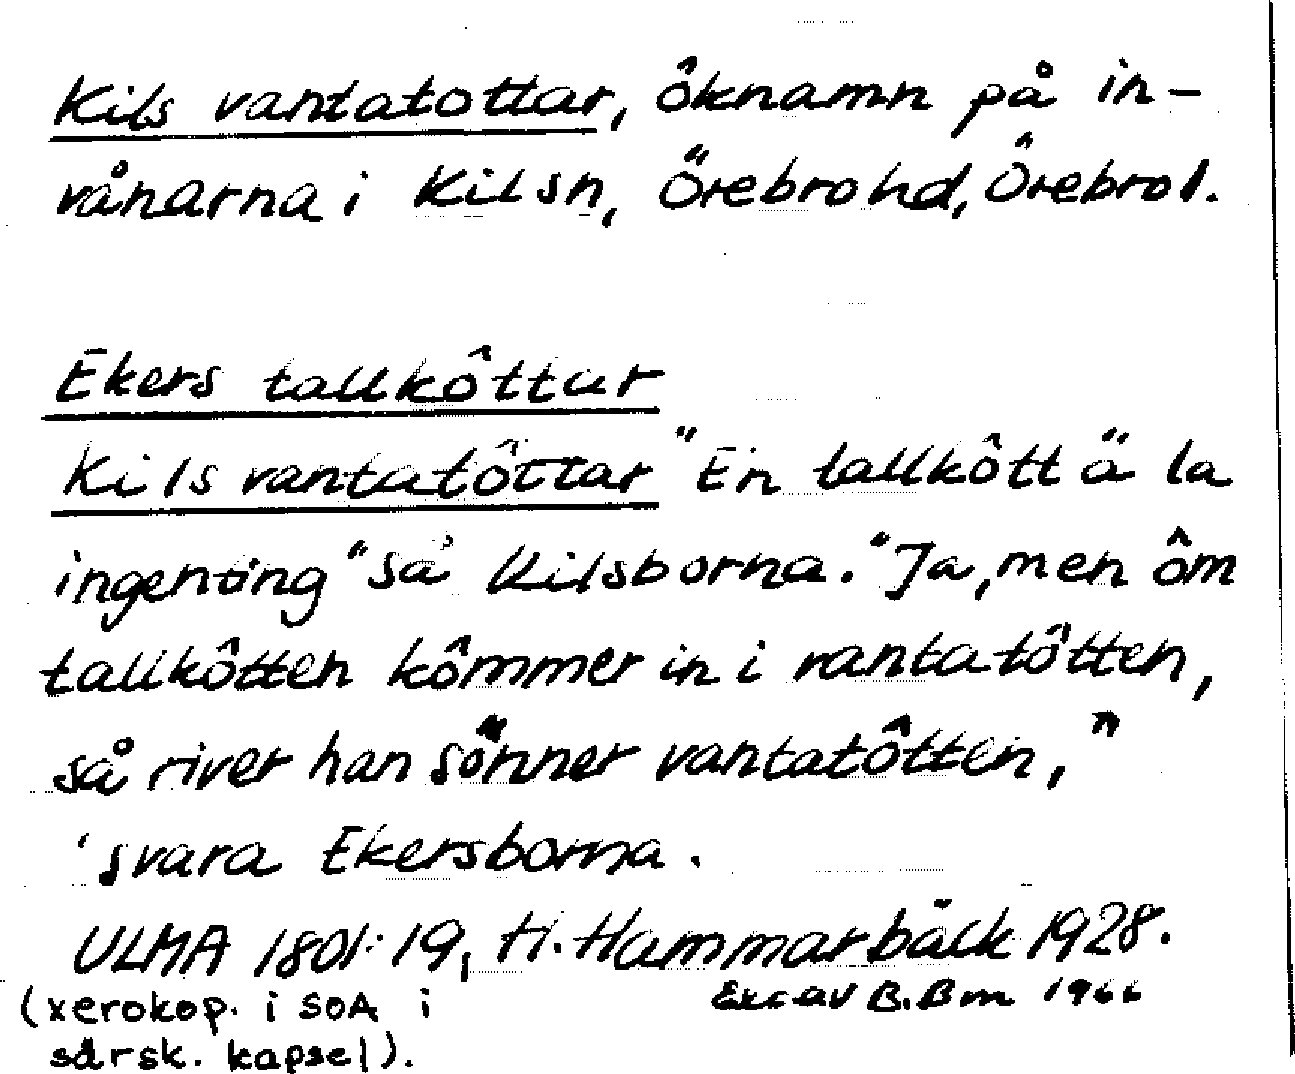 Kils vantatottar, öknamn på in-
vånarna i Kil sn, Örebro hd, Örebro l.
Ekers tallkôttar
Kils vantatôttar "En tallkôtt ä la
ingenting" sa Kilsborna. "Ja, men ôm
tallkôtten kômmer in i vantatôtten,
så river han sönner vantatôtten,"
svara Ekersborna.
ULMA 1801:19, H. Hammarbäck 1928.
(xerokop. i SOA i
särsk. kapsel).
Exc av B. Bm 1966